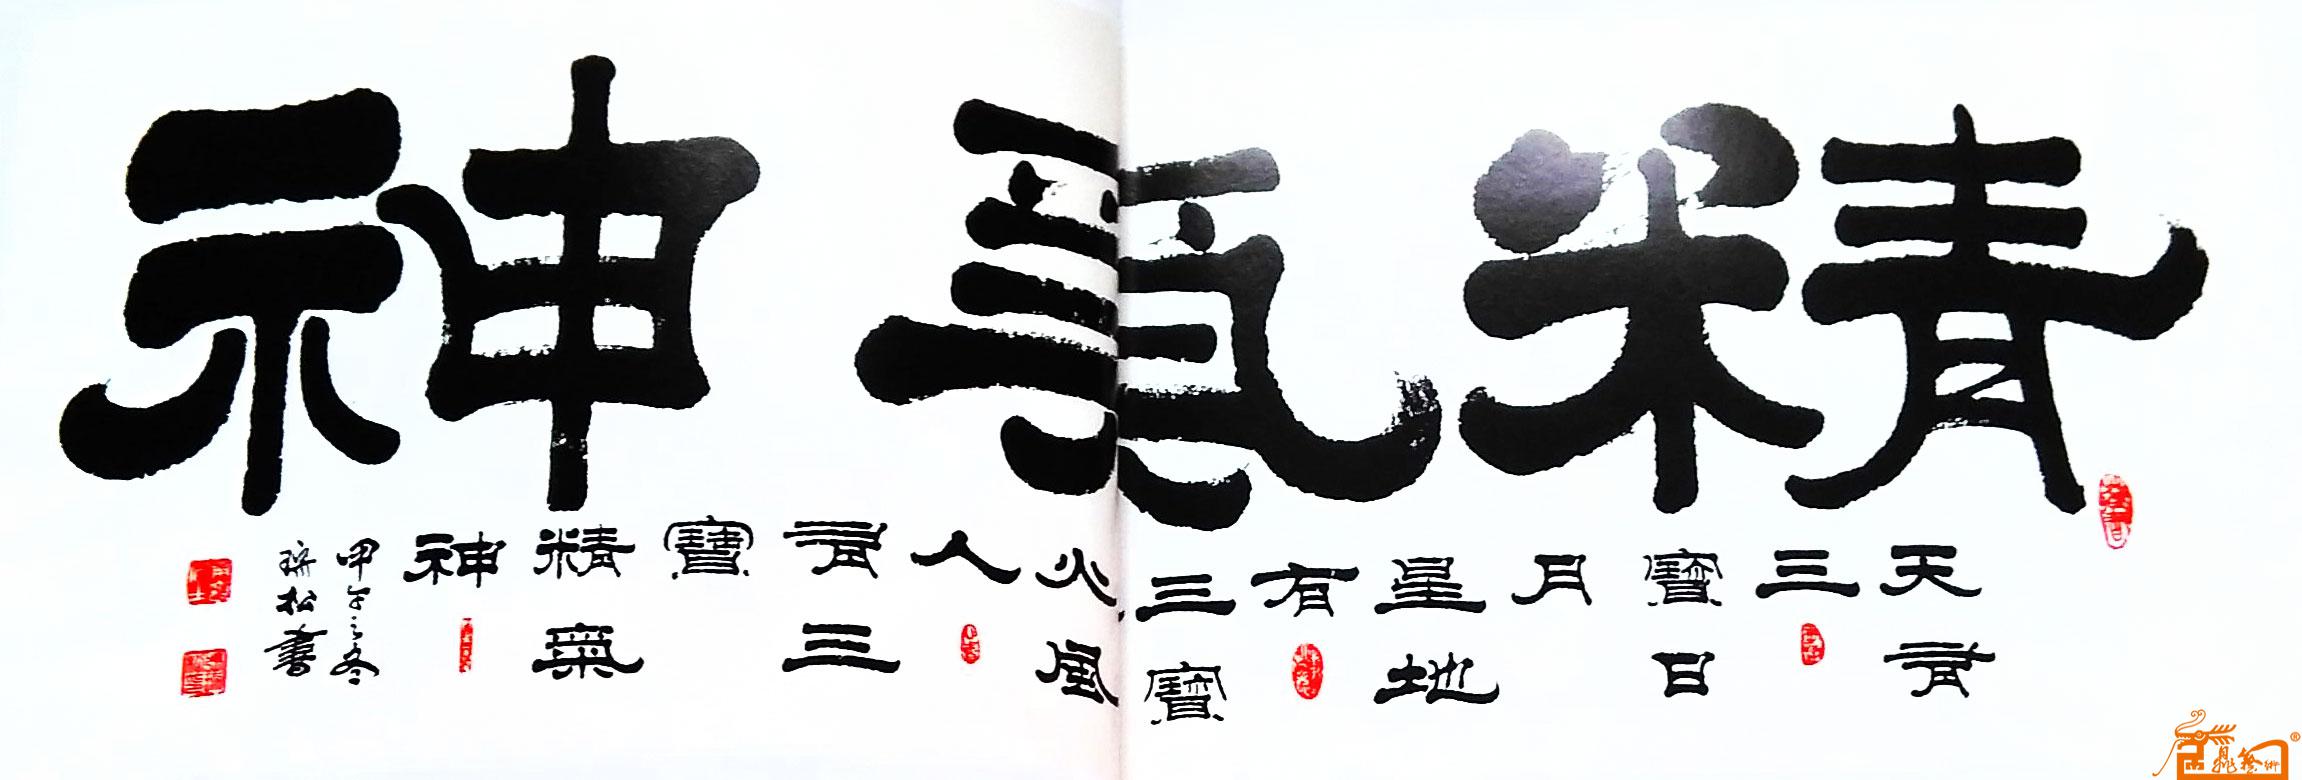 精氣神
天有
三
寶日
月
星地
有
三寶
火風
人
有三
寶
精氣
神
甲午之冬
瑞松書